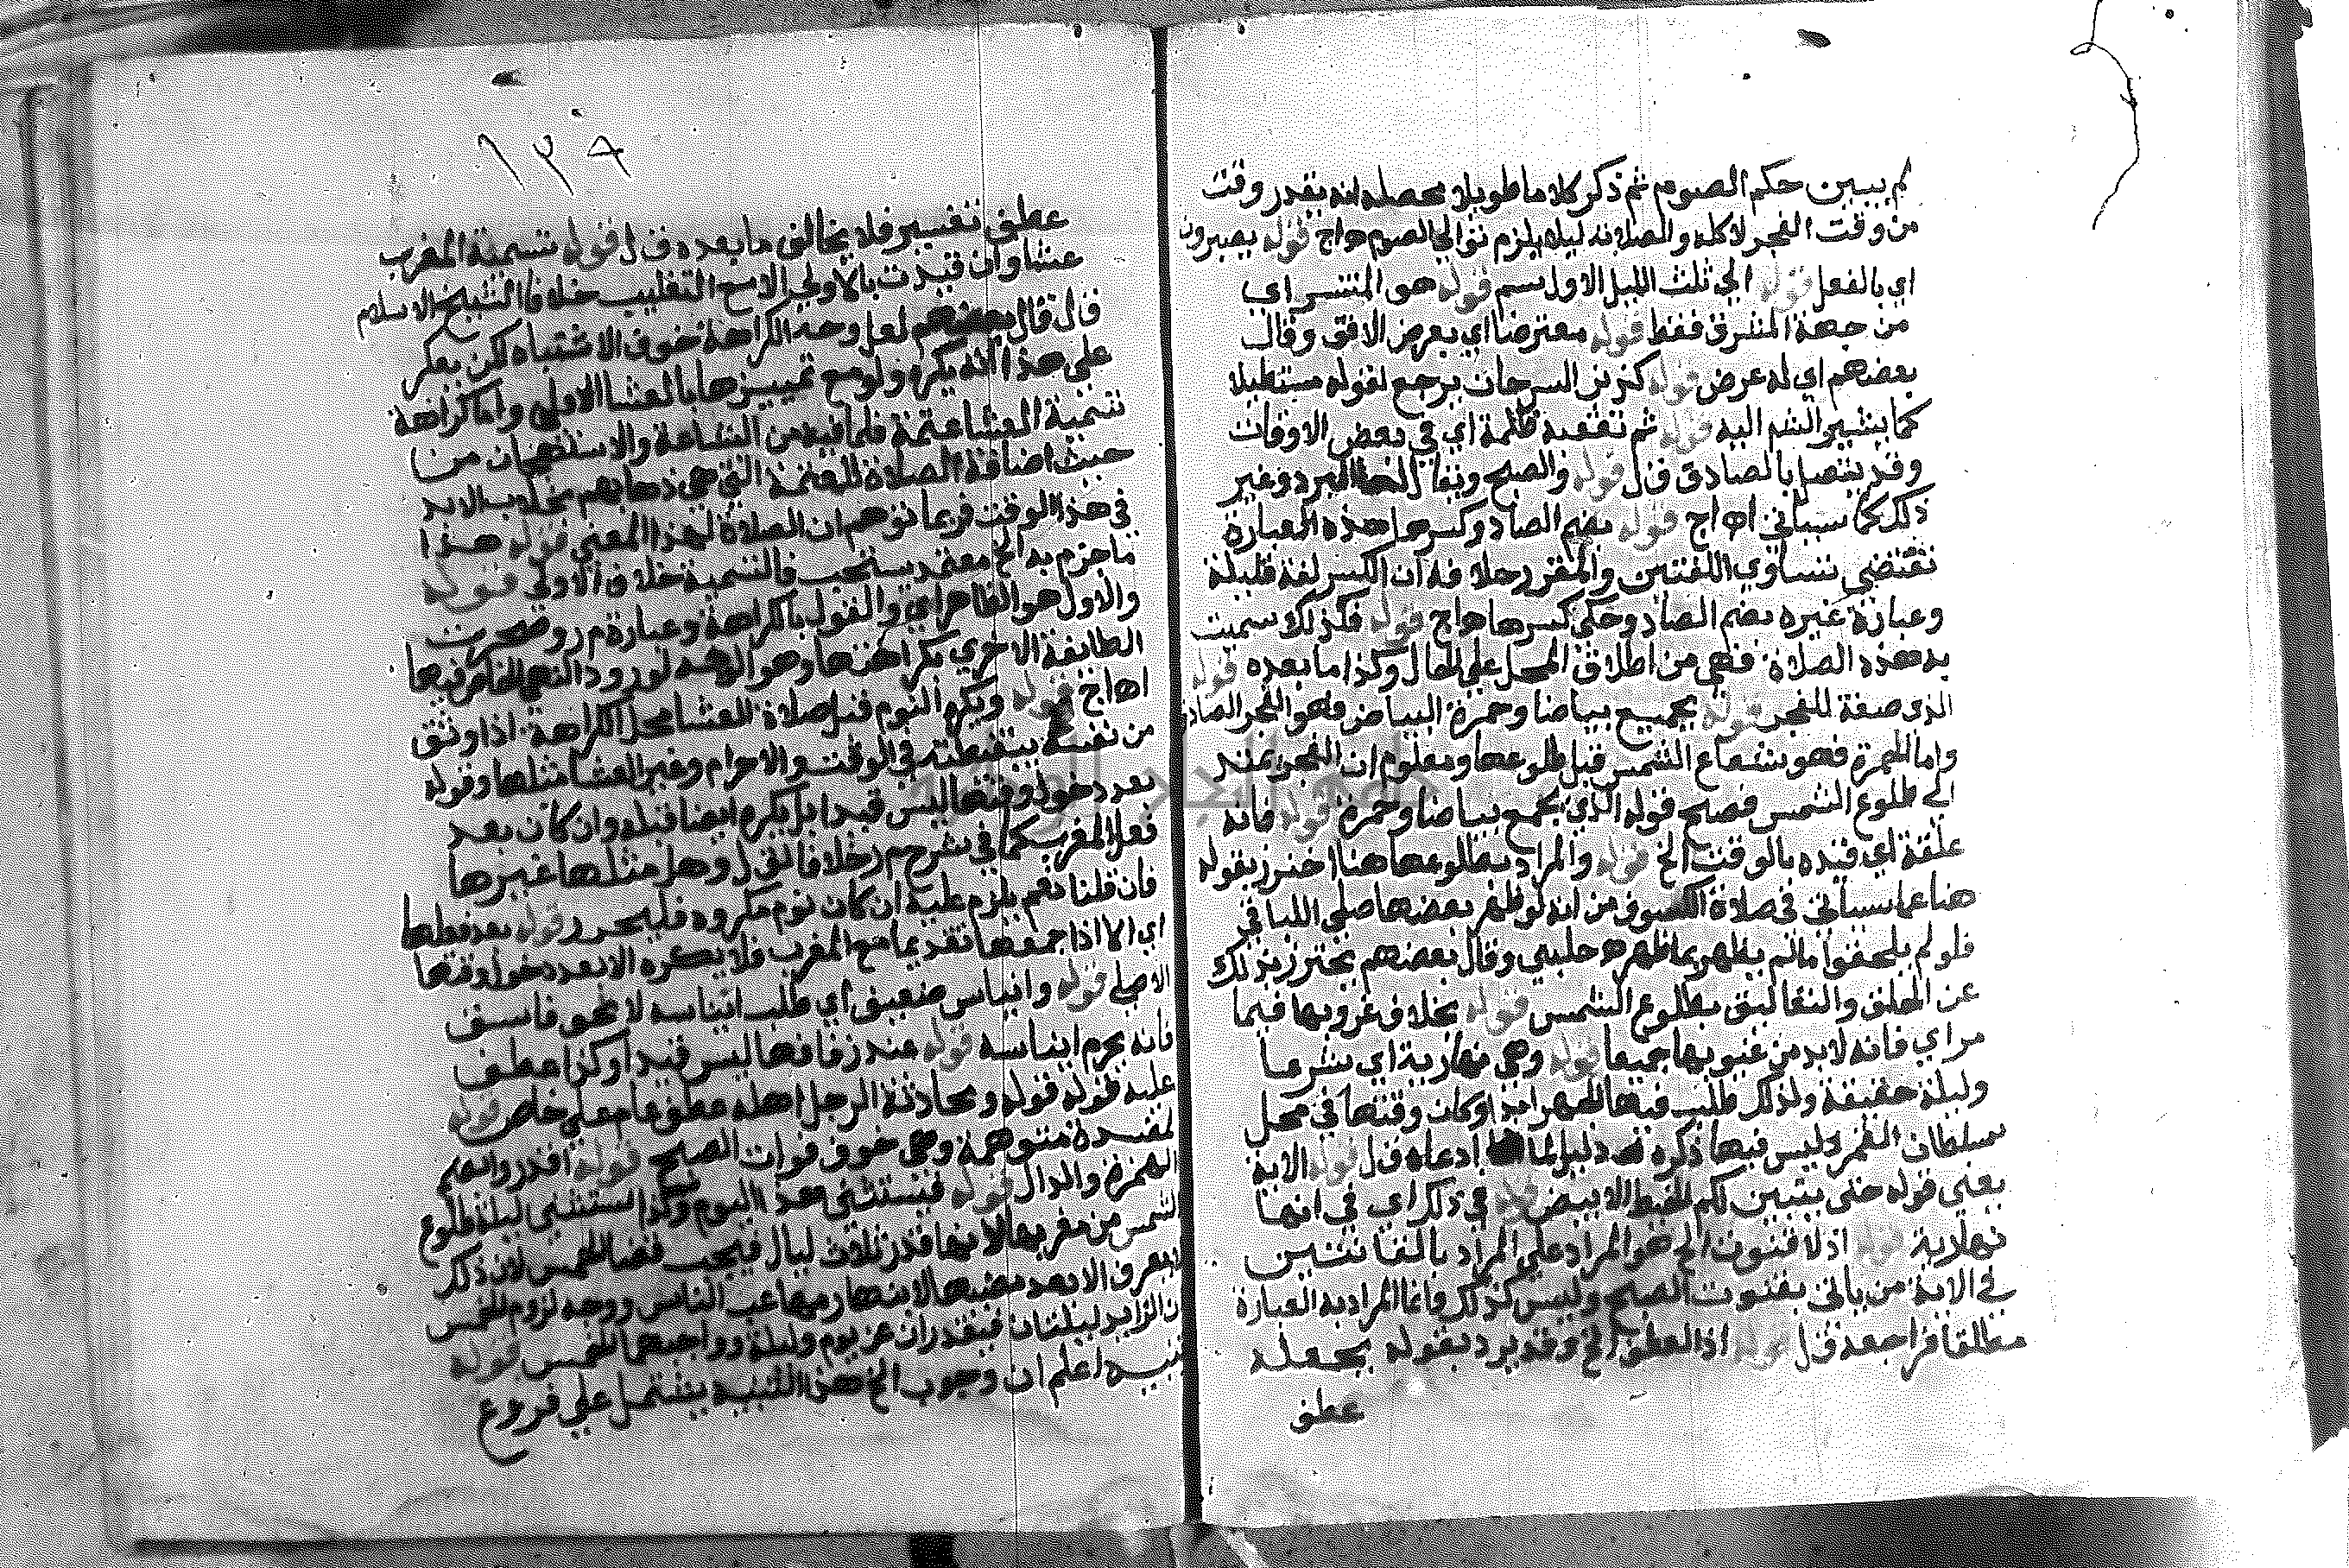 لم يبين حكم الصوم ثم ذكر كلاما طويلا محصله انه يقدر وقت
من وقت الفجر لاكله والصلاته ليلا يلزم توالي الصوم اهاج قوله يصيرون
اي بالفعل قوله الي ثلث الليل الاول سم قوله هو المنتشر اي
من جهة المشرق فقط قوله معترضا اي بعرض الافق وقال
بعضهم اي له عرض قوله كذنب السرحان يرجع لقوله مستطيلا
كما يشير الشم اليه قوله ثم تعقبه ظلمة اي في بعض الاوقات
وقد يتصل بالصادق ق ل قوله والصبح ويقال لها البرد وغير
ذلك كما سياتي اهاج قوله بضم الصاد وكسرها هذه العبارة
تقتضي تساوي اللغتين والمقرر خلافه ان الكسر لغة قليلة
وعبارة غيره بضم الصاد وحكي كسرها اهاج قوله فلذلك سميت
به هذه الصلاة فهي من اطلاق المحل على الحال وكذا ما بعده قوله
الذي صفة للفجر قوله يجمع بياضا وحمرة البياض فهو الفجر الصادق
واما الحمرة فهو شعاع الشمس قبل طلوعها ومعلوم ان الفجر يمتد
الي طلوع الشمس فصح قوله الذي يجمع بياضا وحمرة قوله فانه
علقة اي قيده بالوقت الخ قوله والمراد بطلوعها هنا احترز بقوله
هنا عما سياتي في صلاة الكسوف من انه لو ظهر بعضها صلي اللباقي
فلو لم يلحقوا ما لم يظهر بما ظهر اهـ حلبي وقال بعضهم يحترز بذلك
عن الحلف والتعاليق بطلوع الشمس قوله بخلاف غروبها فيما
مر اي فانه لا بد من غيوبها جميعا قوله وهي نهارية اي شرعا
وليلة حقيقة ولذلك طلب فيها الجهر ابدا وكان وقتها في محل
سلطان القمر وليس فيها ذكره دليل لما ادعاه ق ل قوله الاية
يعني قوله حتي يتبين لكم الخيط الابيض قوله في ذلك اي في انها
نهارية قوله اذ لا قنوت الخ هو المراد علي المراد بالقانتين
في الاية من ياتي بقنوت الصبح وليس كذلك وانما المراد به العبارة
مطلقا فراجعه ق ل قوله اذ العطف الخ وقد يرد بقوله بجعله
عطف
١٣٩
عطف تفسير فلا يخالف ما بعده ق ل قوله تسمية المغرب
عشا وان قيدت بالاولي الاصح التغليب خلافا لشيخ الاسلام
ق ل قال بعضهم لعل وجه الكراهة خوف الاشتباه لكن يعكر
علي هذا انه يكره ولو مع تمييزها بالعشا الاولي واما كراهة
تسمية العشا عتمة فلما فيه من الشناعة والاستهجان من
حيث اضافة الصلاة للعتمة التي هي ذهابهم بحلاب الابد
في هذا الوقت فربما توهم ان الصلاة لهذا المعني قوله هذا
ما جزم به الخ معتمد يستحب والتسمية خلاف الاولي قوله
والاول هو الظاهر اي والقول بالكراهة وعبارة م ر وصحت
الطائفة الاخري بكراهتها وهو الوجه لورود النهي الخاص فيها
اهاج قوله ويكره النوم قبل صلاة العشا محل الكراهة اذا وثق
من نفسه بيقظته في الوقت والاحرام وغير العشا مثلها وقوله
بعد دخول وقتها ليس قيدا بل يكره ايضا قبله وان كان بعد
فعل المغرب كما في شرح م ر خلافا لق ل وهل مثلها غيرها
فان قلنا نعم يلزم عليه ان كان نوم مكروه فليحرر قوله بعد فعلها
اي الا اذا جمعها تقديما مع المغرب فلا يكره الا بعد دخول وقتها
الاصلي قوله وايناس ضعيف اي طلب ايناسه لا نحو فاسق
فانه يحرم ايناسه قوله عند زفافها ليس قيدا وكذا عطف
عليه قوله قوله ومحادثة الرجل اهله عطف عام علي خاص قوله
لمفسدة متوهمة وهي خوف فوات الصبح قوله اقدروا بضم
الهمزة والدال قوله فيستثني هذا اليوم وكذا استثني ليلة طلوع
الشمس من مغربها لانها قدر ثلاث ليال فيجب قضا الخمس لان ذلك
لا يعرف الا بعد مضيها لابتهارمها علي الناس ووجه لزوم الخمس
ان الزايد ليلتان فيقدران عن يوم وليلة وواجبها الخمس قوله
تنبيه اعلم ان وجوب الخ هذا التنبيه يشتمل علي فروع